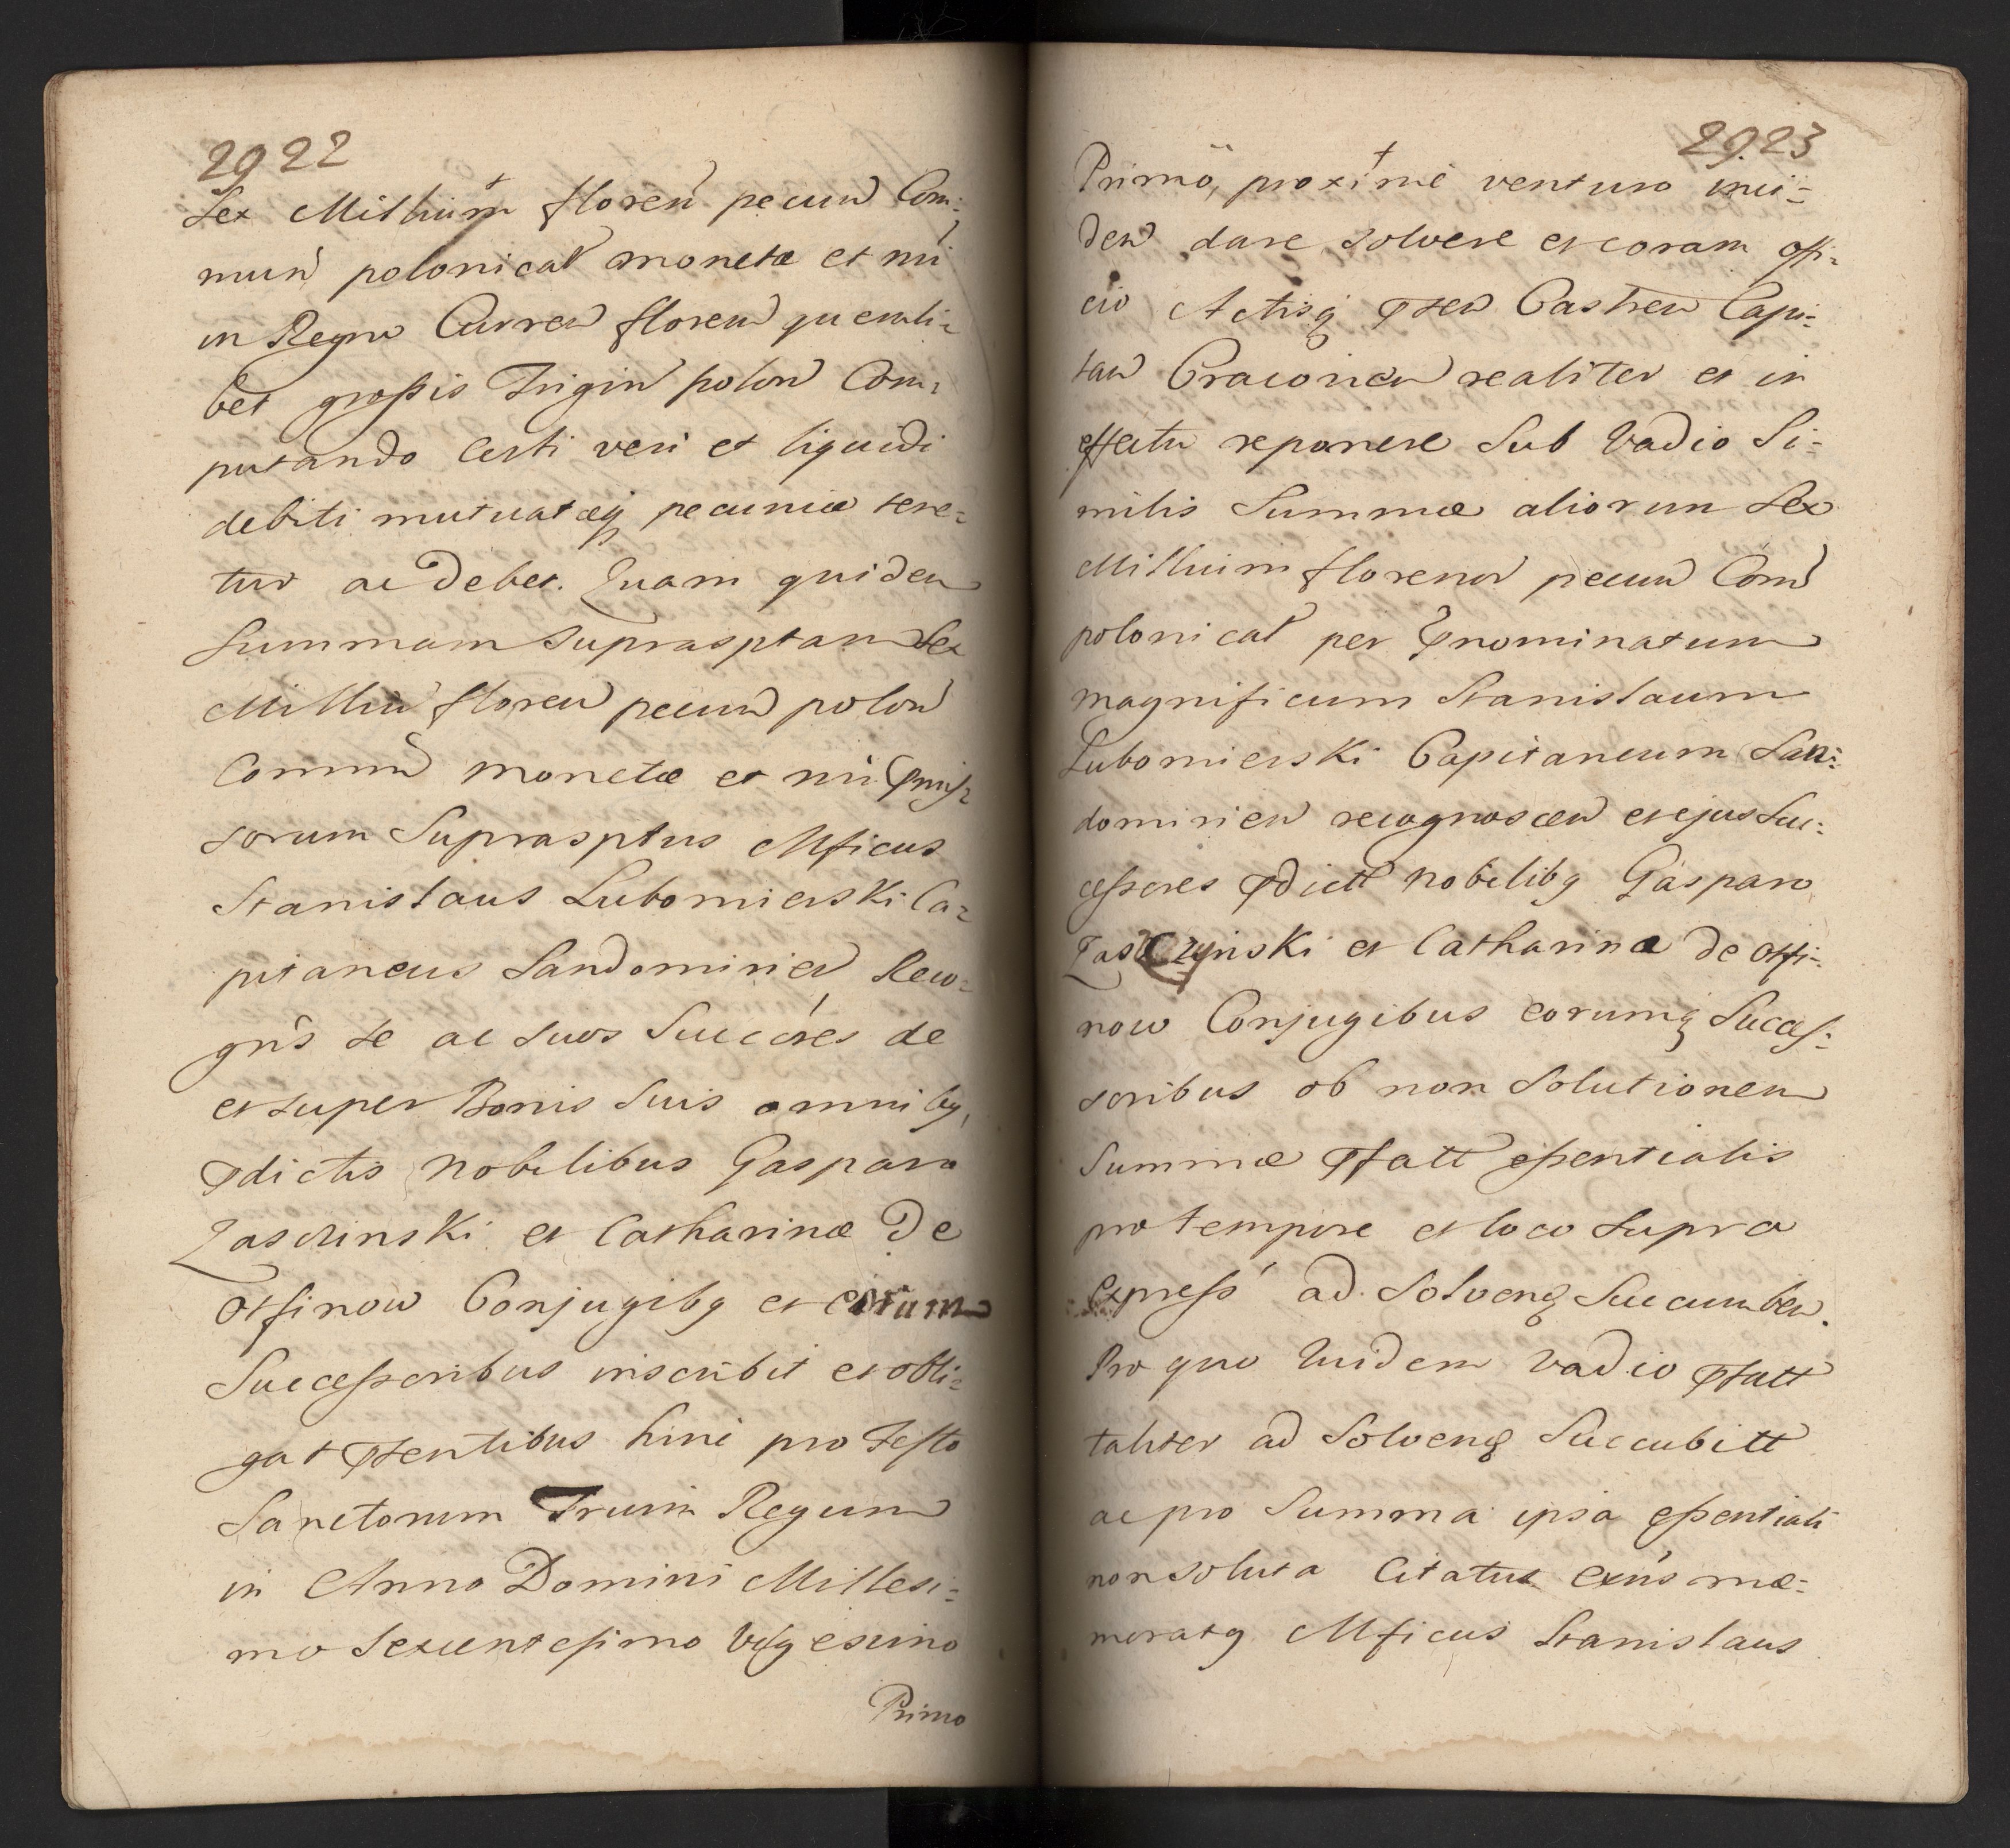 2922
Sex Millium floren pecun Com-
mun polonical monetæ et nri
in Regno Curren floren quemli-
bet grossis Trigin polon Com-
putando Certi veri et liquidi
debiti mutuatæq pecuniæ tene-
tur ac debet. Quam quidem
Summam suprasptam Sex
Milliu floren pecun polon
Commun monetæ et nri
sorum Suprasptus Mficus
Stanislaus Lubomierski Ca-
pitaneus Sandomirien Reco-
gns se ac suos Succores de
et super Bonis Suis omnibq,
pdictis Nobilibus Gasparo
Zasclinski et Catharinæ De
Otfinow Conjugibq et eorum
Successoribus inscribit et obli-
gat psentibus hinc pro Festo
Sanctorum Trium Regum
in Anno Domini Millesi-
mo Sexcentesimo Vigesimo
Primo
2923
Primo, proxime venturo inci-
den dare solvere et coram offi-
cio Actisq psen Castren Capi-
tan Cracovien realiter et in
effectu reponere Sub Vadio Si-
milis Summæ aliorum Sex
Millium florenor pecun Com
polonical per pnominatum
magnificum Stanislaum
Lubomierski Capitaneum San-
domirien recognoscen et ejus Suc-
cessores pdictt Nobilibq Gasparo
et Catharinæ de Otfi-
now Conjugibus eorumq Succes-
soribus ob non Solutionem
Summæ pfatt essentialis
pro tempore et loco supra
express ad Solvenq Succumben.
Pro quo quidem vadio pfatt
taliter ad Solvenq Succubitt
ac pro Summa ipsa essentiali
non soluta Citatus exns me-
moratq Mficus Stanislaus